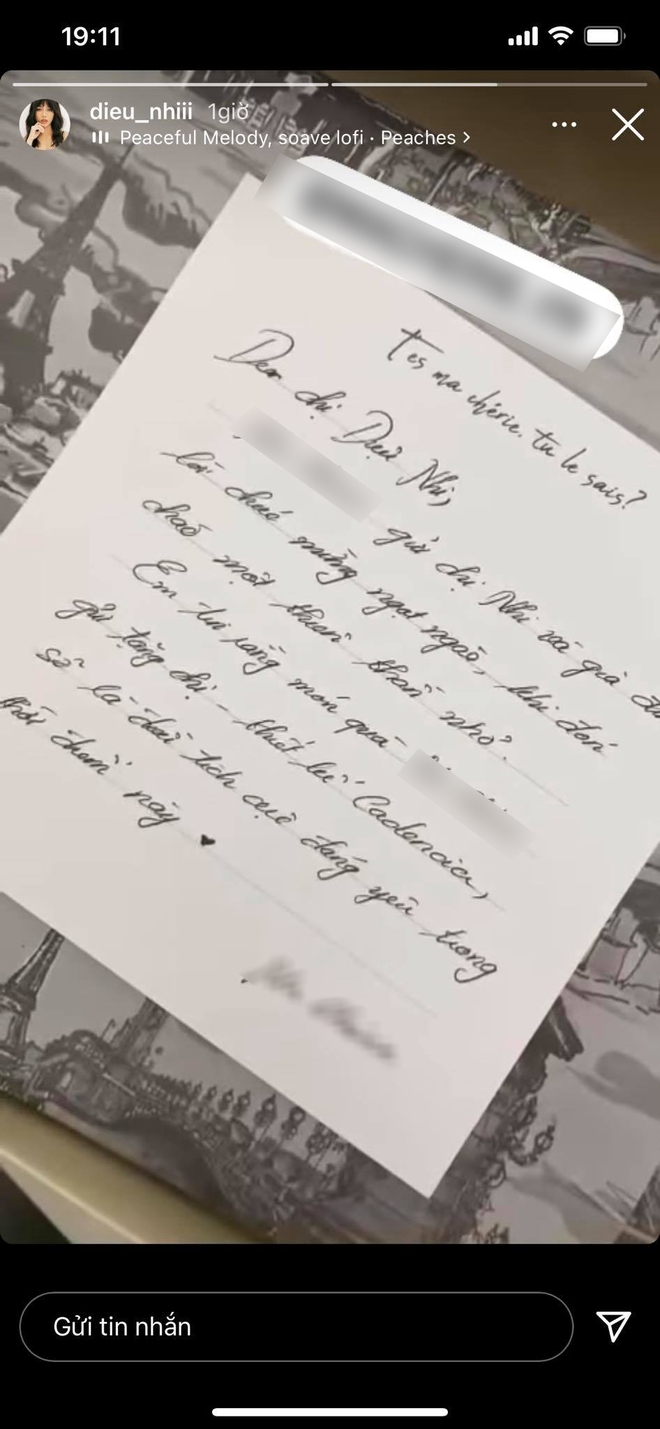 19:11
dieu_nhiii 1giờ
Peaceful Melody, soave lofi · Peaches
T'es ma chérie. tu le sais?
Dear chị Diệu Nhi,
gửi chị Nhi và gia
lời chúc mừng ngọt ngào, khi đón
chào một thiên thần nhỏ.
Em tin rằng món quà
gửi tặng chị - Cadencier,
sẽ là đáng yêu trong
thời điểm này ♥
Gửi tin nhắn